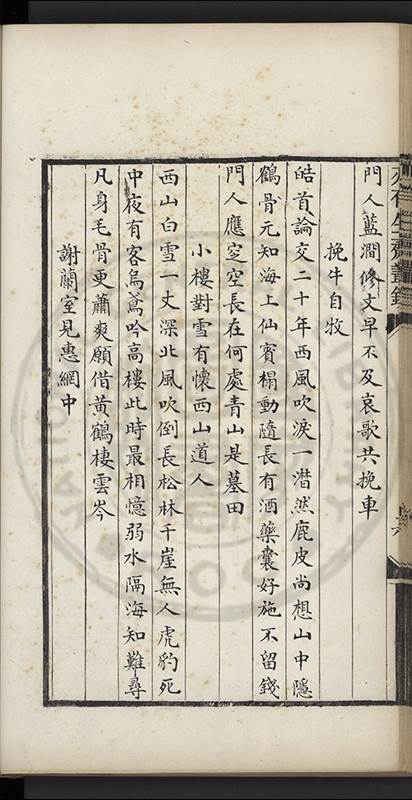 門人藍澗修文早不及哀歌共挽車
挽牛自牧
皓首論交二十年西風吹淚一潸然鹿皮尚想山中隱
鶴骨元知海上仙賓榻動隨長有酒藥囊好施不留錢
門人應窆空長在何處青山是墓田
小樓對雪有懷西山道人
西山白雪一丈深北風吹倒長松林千崖無人虎豹死
中夜有客烏鳶吟高樓此時最相憶弱水隔海知難尋
凡身毛骨更蕭爽願借黃鶴棲雲岑
謝蘭室見惠網巾